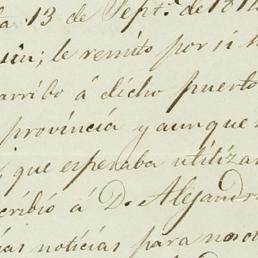 a 13 de Sept.e de 181
sin; le remito por si h
arribo á dicho puerto
provincia y aunque
, que esperaba utilizar
cribió á D. Alejandr
ias noticias para nosot